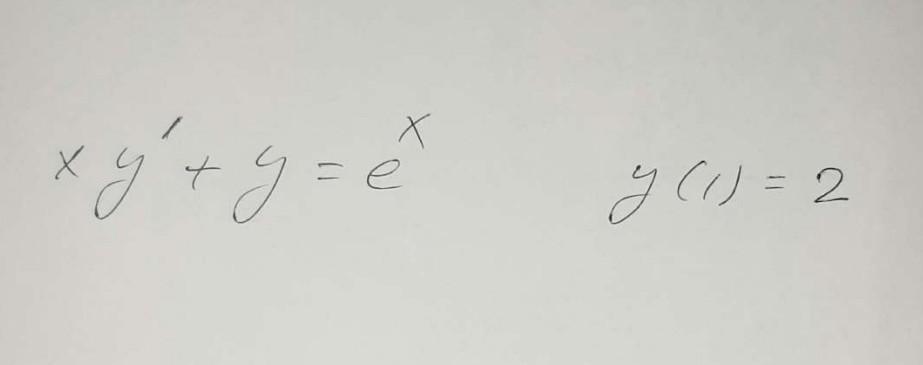 x y' + y = e^x y(1) = 2